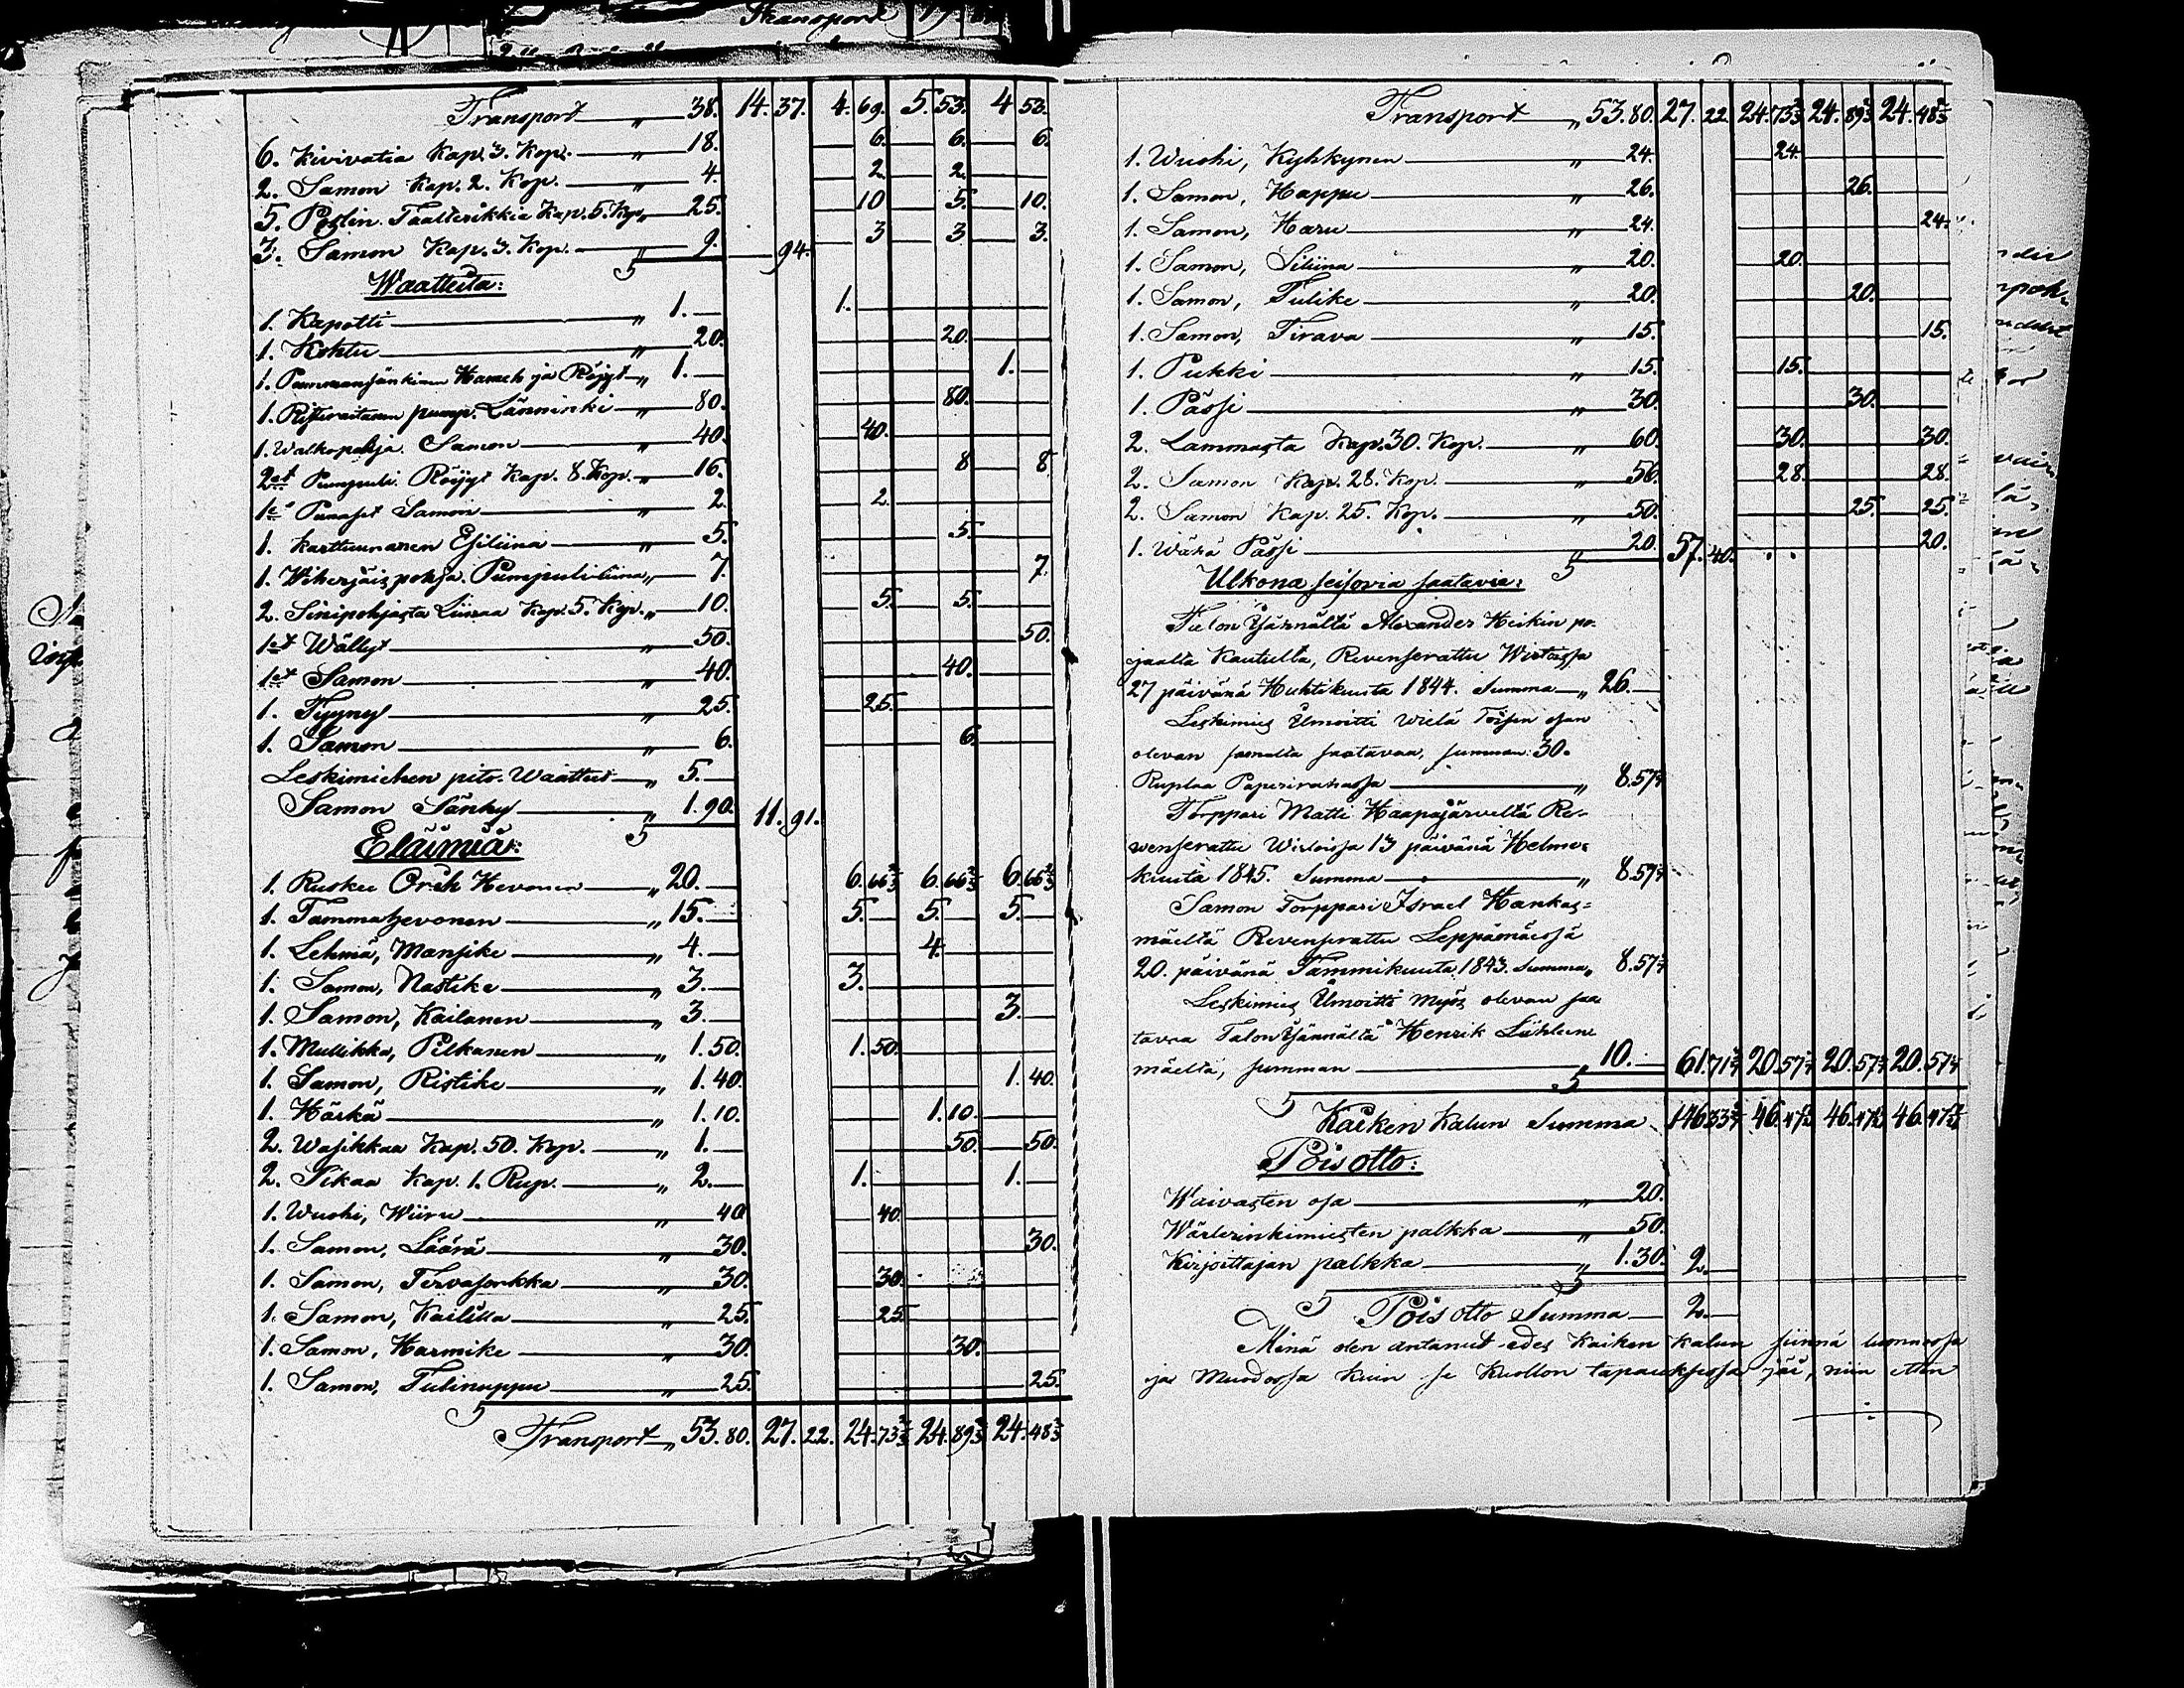 Transport
Transport „ 38. 14. 37. 4. 69. 5. 53. 4. 53.
6. Kivivatia Kap. 3. Kop. „ 18. 6. 6. 6.
2. Samon Kap. 2. Kop. „ 4. 2. 2.
5. Poslin. Taalterikkia Kap. 5. Kop. „ 25. 10 5. 10.
3. Samon Kap. 3. Kop. „ 9. 94. 3 3 3.
Waatteita:
1. Kapotti „ 1. 1.
1. Kohtu „ 20. 20.
1. Hameh ja Röijyt „ 1. 1.
1. pump. Länninki „ 80. 80.
1. Walkopohja. Samon „ 40. 40.
2et Pumpuli. Röijyt Kap. 8. Kop. „ 16. 8 8
1et Punaset Samon „ 2. 2.
1. Karttuunanen Esiliina „ 5. 5.
1. Wiherjäis pohja. Pumpuli liina „ 7. 7.
2. Sinipohjasta Liinaa Kap. 5. Kop. „ 10. 5. 5.
1et Wällyt „ 50. 50.
1et Samon „ 40. 40.
1. Tyyny „ 25. 25.
1. Samon „ 6. 6.
Leskimiehen pito. Waatteet „ 5.
Samon Sänky „ 1. 90. 11. 91.
Eläimiä:
1. Ruskee Oreh Hevonen „ 20. 6. 66⅔ 6. 66⅔ 6. 66⅔
1. Tammahevonen „ 15. 5. 5. 5.
1. Lehmä, Mansike „ 4. 4.
1. Samon, Nastike „ 3. 3.
1. Samon, Kailanen „ 3. 3.
1. Mullikka, Pilkanen „ 1. 50. 1. 50.
1. Samon, Ristike „ 1. 40. 1. 40.
1. Härkä „ 1. 10. 1. 10.
2. Wasikkaa Kap. 50. Kop. „ 1. 50. 50.
2. Sikaa Kap. 1. Rup. „ 2. 1. 1.
1. Wuohi, Wiiru „ 40 40.
1. Samon, Läärä „ 30. 30.
1. Samon, Tervasorkka „ 30. 30.
1. Samon, Kailikka „ 25. 25.
1. Samon, Harmike „ 30. 30.
1. Samon, Tulinuppu „ 25. 25.
Transport „ 53. 80. 27. 22. 24. 73⅓ 24. 89⅔ 24. 48⅔
Transport „ 53. 80. 27. 22. 24. 73⅓ 24. 89⅔ 24. 48⅔
1. Wuohi, Kyhkynen „ 24. 24.
1. Samon, Happu „ 26. 26.
1. Samon, Haru „ 24. 24.
1. Samon, Liliina „ 20. 20.
1. Samon, Tulike „ 20. 20.
1. Samon, Tirava „ 15. 15.
1. Pukki „ 15. 15.
1. Pässi „ 30. 30.
2. Lammasta Kap. 30. Kop. „ 60. 30. 30.
2. Samon Kap. 28. Kop. „ 56. 28. 28.
2. Samon Kap. 25. Kop. „ 50. 25. 25.
1. Wähä Pässi „ 20. 57. 40. 20.
Ulkona seisovia saatavia:
Talon Isännältä Alexander Heikin po-
jaalta Revenserattu Wirtassa
27 päivänä Huhtikuuta 1844. Summa „ 26.
Leskimies Ilmoitti Wielä Toisen osan
olevan samalta saatavaa, summan: 30.
Ruplaa Paperirahassa „ 8. 57
Torppari Matti Haapajärveltä Re-
wenserattu Wirtoissa 13 päivänä Helme-
kuuta 1845. Summa „ 8. 57
Samon Torppari Israel Hankas-
mäeltä Revenserattu Leppämäessä
20. päivänä Tammikuuta 1843. Summa „ 8. 57
Leskimies Ilmoitti Myös olevan saa
tavaa Talon Isännältä Henrik
mäeltä, summan 10. 61. 71 20. 57 20. 57 20. 57
Kaiken Kalun Summa 146 33 46. 46. 46.
Poisotto:
Waivasten osa „ 20.
Wärterinkimiesten palkka „ 50.
Kirjoittajan palkka „ 1. 30. 2.
Poisotto Summa 2.
Minä olen antanut edes Kaiken kalun siinnä luonnossa
ja Muodossa kuin se Kuollon tapauksessa jäi, niin etten